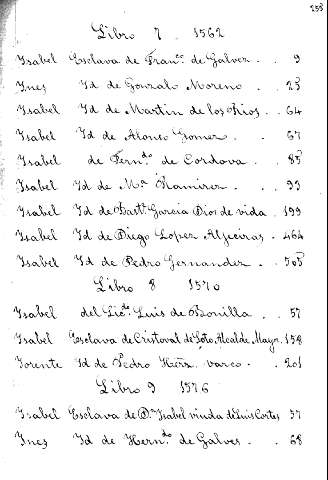 255
Libro 7 1562
Isabel Esclava de Fran.co de Galvez . . 9
Ines Id de Gonzalo Moreno . . 23
Isabel Id de Martin de los Rios . . 64
Isabel Id de Alonso Gomez . . 67
Isabel de Fern.do de Cordova . . 85
Isabel Id de M.n Ramirez . . 99
Isabel Id de Bast.n Garcia Dios de vida . 199
Isabel Id de Diego Lopez Aljeciras . 464
Isabel Id de Pedro Gernandez . . 505
Libro 8 1570
Isabel del Lic.do Luis de Bonilla . . 57
Isabel Esclava de Cristoval de Soto, Alcalde Mayr. 158
Lorente Id de Pedro Herz. varco . 201
Libro 9 1576
Isabel Esclava de D.a Isabel viuda de Luis Cortes 57
Ines Id de Hern.do de Galves . . 68